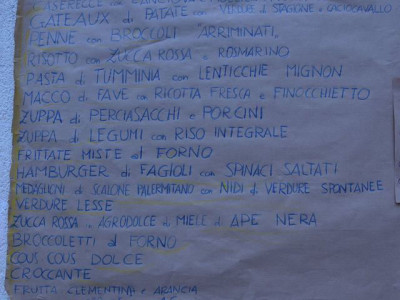 CASERECCE con
GATEAUX di PATATE con VERDURE di STAGIONE e CACIOCAVALLO
PENNE con BROCCOLI ARRIMINATI,
RISOTTO con ZUCCA ROSSA e ROSMARINO
PASTA di TUMMINIA con LENTICCHIE MIGNON
MACCO di FAVE con RICOTTA FRESCA e FINOCCHIETTO
ZUPPA di PERCIASACCHI e PORCINI
ZUPPA di LEGUMI con RISO INTEGRALE
FRITTATE MISTE al FORNO
HAMBURGER di FAGIOLI con SPINACI SALTATI
MEDAGLIONI di SCALONE PALERMITANO con NIDI di VERDURE SPONTANEE
VERDURE LESSE
ZUCCA ROSSA in AGRODOLCE di MIELE di APE NERA
BROCCOLETTI al FORNO
COUS COUS DOLCE
CROCCANTE
FRUTTA CLEMENTINA e ARANCIA